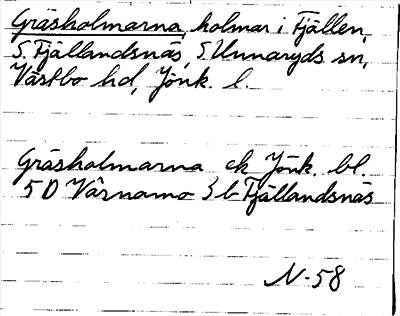 Gräsholmarna, holmar i Fjällen,
S. Fjällandsnäs, S. Unnaryds sn,
Västbo hd, Jönk. l.
Gräsholmarna ek Jönk. bl.
5 D Värnamo S b Fjällandsnäs
N-58